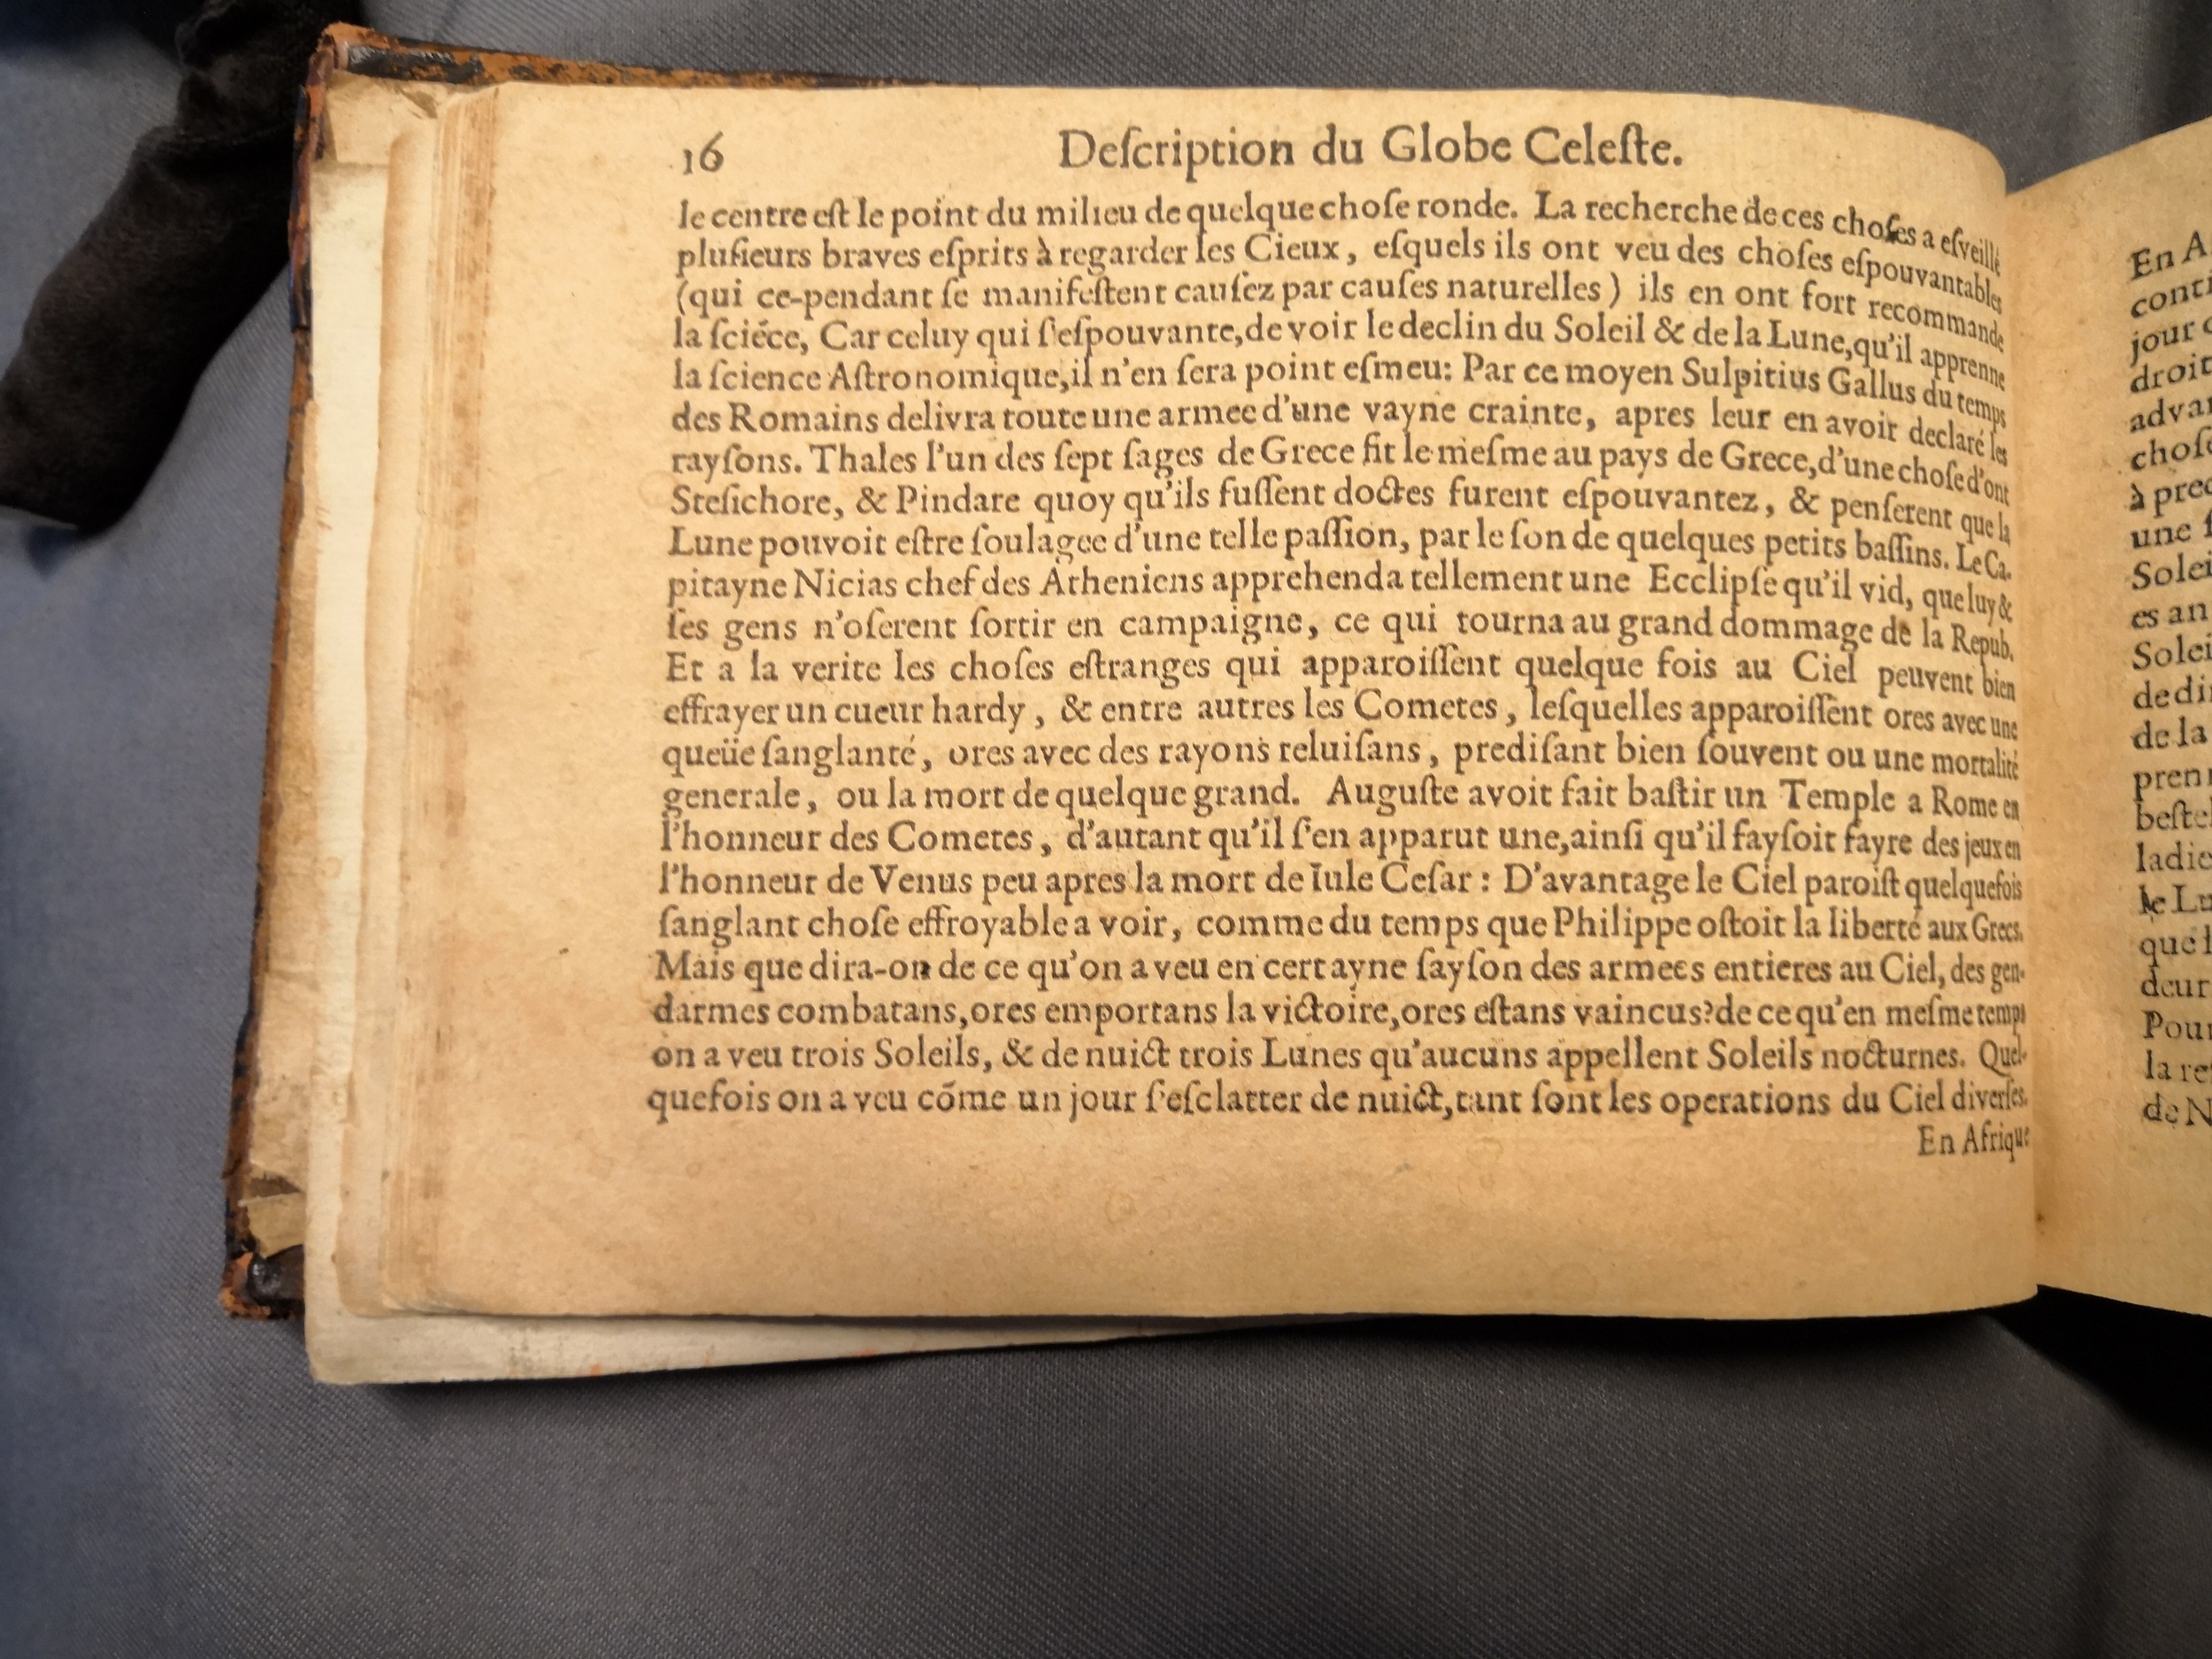 16 Deſcription du Globe Celeſte.
le centre eſt le point du milieu de quelque choſe ronde. La recherche de ces choſes a eſveillé
pluſieurs braves eſprits à regarder les Cieux, eſquels ils ont veu des choſes eſpouvantables
(qui ce-pendant ſe manifeſtent cauſez par cauſes naturelles) ils en ont fort recommande
la ſciéce, Car celuy qui ſ'eſpouvante, de voir le declin du Soleil & de la Lune, qu'il apprenne
la ſcience Aſtronomique, il n'en ſera point eſmeu: Par ce moyen Sulpitius Gallus du temps
des Romains delivra toute une armee d'une vayne crainte, apres leur en avoir declaré les
rayſons. Thales l'un des ſept ſages de Grece fit le meſme au pays de Grece, d'une choſe d'ont
Steſichore, & Pindare quoy qu'ils fuſſent doctes furent eſpouvantez, & penſerent que la
Lune pouvoit eſtre ſoulagee d'une telle paſſion, par le ſon de quelques petits baſſins. Le Ca-
pitayne Nicias chef des Atheniens apprehenda tellement une Ecclipſe qu'il vid, que luy &
ſes gens n'oſerent ſortir en campaigne, ce qui tourna au grand dommage de la Repub.
Et a la verite les choſes eſtranges qui apparoiſſent quelque fois au Ciel peuvent bien
effrayer un cueur hardy, & entre autres les Cometes, leſquelles apparoiſſent ores avec une
queüe ſanglanté, ores avec des rayons reluiſans, prediſant bien ſouvent ou une mortalité
generale, ou la mort de quelque grand. Auguſte avoit fait baſtir un Temple a Rome en
l'honneur des Cometes, d'autant qu'il ſ'en apparut une, ainſi qu'il fayſoit fayre des jeux en
l'honneur de Venus peu apres la mort de Iule Ceſar: D'avantage le Ciel paroiſt quelquefois
ſanglant choſe effroyable a voir, comme du temps que Philippe oſtoit la liberté aux Grecs.
Mais que dira-on de ce qu'on a veu en certayne ſayſon des armees entieres au Ciel, des gen-
darmes combatans, ores emportans la victoire, ores eſtans vaincus? de ce qu'en meſme temps
on a veu trois Soleils, & de nuict trois Lunes qu'aucuns appellent Soleils nocturnes. Quel-
quefois on a veu cõme un jour ſ'eſclatter de nuict, tant ſont les operations du Ciel diverſes.
En Afrique
En A
conti
jour
droit
advan
choſe
à pred
une
Solei
es an
Solei
de di
de la
pren
beſte
ladie
le Lu
que l
deur
Pour
la re
de N